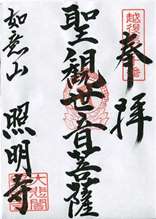 奉拝
聖観世音菩薩
大悲閣
如意山 照明寺